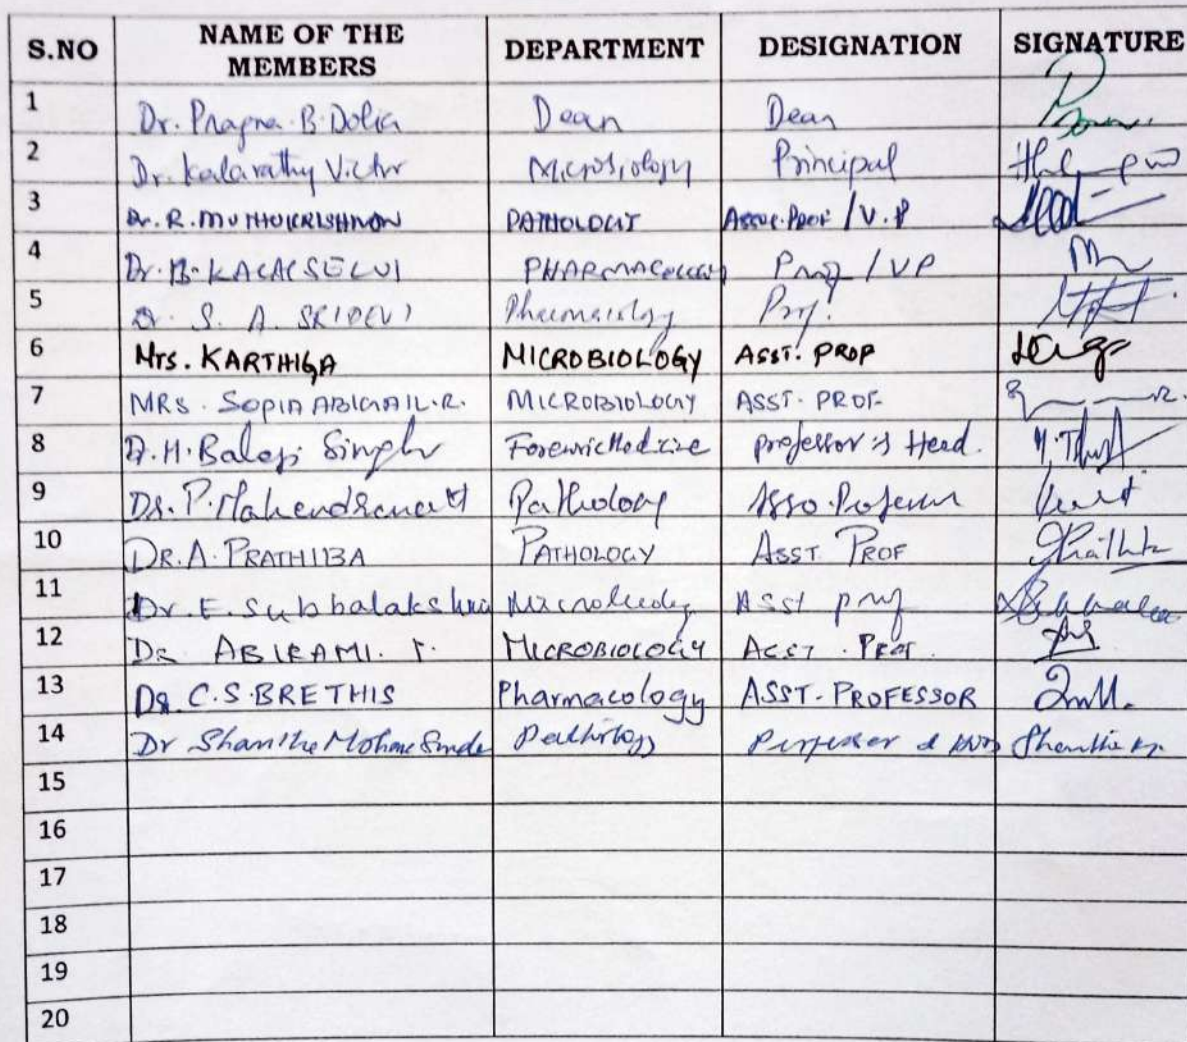 S.NO NAME OF THE MEMBERS DEPARTMENT DESIGNATION SIGNATURE
1 Dr. Pragna B. Dolia Dean Dean
2 Dr. Kalavathy Victor Microbiology Principal
3 Dr. R. MUTHUKRISHNAN PATHOLOGY ASSOC. PROF / V.P
4 Dr. B. KALAISELVI PHARMACOLOGY Prof / VP
5 Dr. S. A. SRIDEVI Pharmacology Prof.
6 Mrs. KARTHIGA MICROBIOLOGY ASST. PROF
7 MRS. SOPIA ABIGAIL. R. MICROBIOLOGY ASST. PROF.
8 Dr. H. Balaji Singh Forensic Medicine professor & Head.
9 Dr. P. Mahendranath Pathology Asso. Professor
10 DR. A. PRATHIBA PATHOLOGY ASST. PROF
11 Dr. E. Subbalakshmi Asst prof
12 Dr ABIRAMI. MICROBIOLOGY ASST. PROF.
13 Dr. C.S. BRETHIS Pharmacology ASST. PROFESSOR
14 Dr Shantha Pathology Professor &
15
16
17
18
19
20